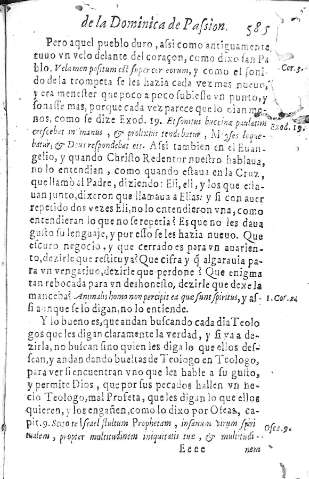 de la Dominica de Passion. 585
Pero aquel pueblo duro, assi como antiguamente
tuuo vn velo delante del coraçon, como dixo san Pa
blo. Velamen positum est super cor eorum, y como el soni- Cor. 3.
do de la trompeta se les hazia cada vez mas nueuo,
y era menester que poco a poco subiesse vn punto, y
sonasse mas, porque cada vez parece que lo oian me-
nos, como se dize Exod. 19. Et sonitus buccinæ paulatim
crescebat in maius, & prolixius tendebatur, Moyses loque- Exod. 19.
batur, & Deus respondebat ei. Assi tambien en el Euan-
gelio, y quando Christo Redentor nuestro hablaua,
no lo entendian, como quando estaua en la Cruz,
que llamò al Padre, diziendo: Eli, eli, y los que esta-
uan junto, dixeron que llamaua a Elias: y si con auer
repetido dos vezes Eli, no lo entendieron vna, como
entendieran lo que no se repetia? Es que no les daua
gusto su lenguaje, y por esso se les hazia nueuo. Que
escuro negocio, y que cerrado es para vn auarien-
to, dezirle que restituya? Que cifra y algarauia pa-
ra vn vengatiuo, dezirle que perdone? Que enigma
tan rebocada para vn deshonesto, dezirle que dexe la
manceba? Animalis homo non percipit ea quæ sunt spiritus, y as- 1. Cor. 2.
si aunque se lo digan, no lo entiende.
Y lo bueno es, que andan buscando cada dia Teolo
gos que les digan claramente la verdad, y si va a de-
zirla, no buscan sino quien les diga lo que ellos des-
sean, y andan dando bueltas de Teologo en Teologo,
para ver si encuentran vno que les hable a su gusto,
y permite Dios, que por sus pecados hallen vn ne-
cio Teologo, mal Profeta, que les digan lo que ellos
quieren, y los engañen, como lo dixo por Oseas, ca-
pit. 9. Scitote Israel stultum Prophetam, insanum virum spiri Osee. 9.
tualem, propter multitudinem iniquitatis tuæ, & multitudi-
Eeee nem